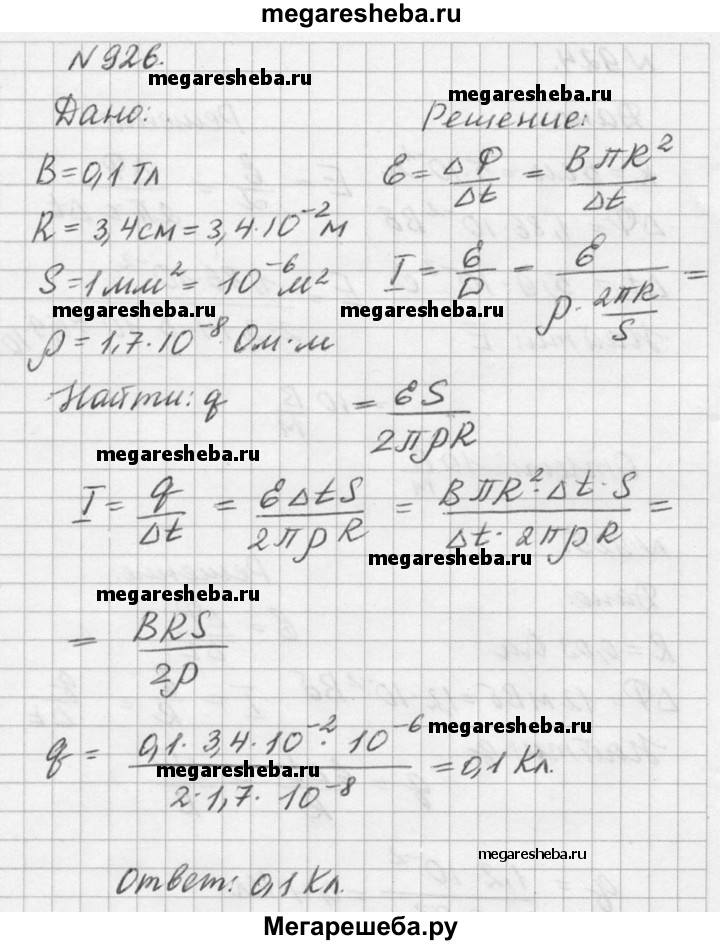 megaresheba.ru
N 926.
megaresheba.ru
megaresheba.ru
Дано:
Решение:
B = 0,1 Тл
Ɛ = ΔФ/Δt = BπR²/Δt
R = 3,4 см = 3,4·10⁻² м
S = 1 мм² = 10⁻⁶ м²
I = Ɛ/R = Ɛ/(ρ·2πR/S) =
megaresheba.ru
megaresheba.ru
ρ = 1,7·10⁻⁸ Ом·м
Найти: q
= ƐS/2πρR
megaresheba.ru
I = q/Δt = ƐΔtS/2πρR = BπR²·Δt·S/Δt·2πρR =
megaresheba.ru
megaresheba.ru
= BRS/2ρ
megaresheba.ru
q = 0,1·3,4·10⁻²·10⁻⁶/2·1,7·10⁻⁸ = 0,1 Кл.
megaresheba.ru
megaresheba.ru
Ответ: 0,1 Кл.
Мегарешеба.ру